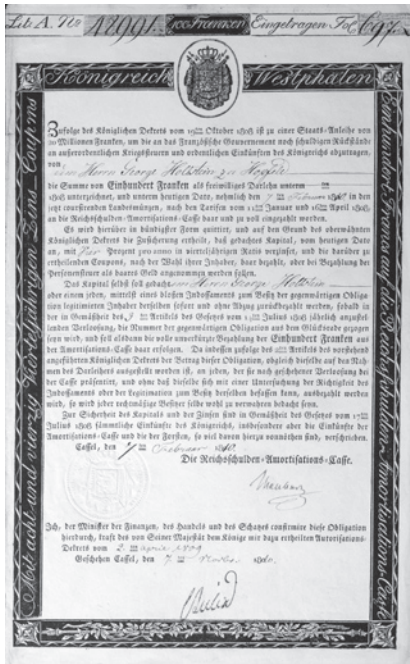 Lit. A. No 12991. 100 Franken Eingetragen Fol. 697.
Königreich Westphalen
Zufolge des Königlichen Dekrets vom 19ten Oktober 1808 ist zu einer Staats-Anleihe von
20 Millionen Franken, um die an das Französische Gouvernement noch schuldigen Rückstände
an außerordentlichen Kriegssteuern und ordentlichen Einkünften des Königreichs abzutragen,
von
dem Herrn George Holzstein
die Summe von Einhundert Franken als freiwilliges Darlehn unterm
1808 unterzeichnet, und unterm heutigen Date, nehmlich den 7 Februar 1810 in den
jetzt coursirenden Landesmünzen, nach den Tarifen vom 11ten Januar und 16ten April 1808,
an die Reichsschulden-Amortisations-Casse baar und zu voll eingezahlt worden.
Es wird hierüber in bündigster Form quittiret, und auf den Grund des oberwähnten
Königlichen Dekrets die Zusicherung ertheilt, daß gedachtes Kapital, vom heutigen Date
an, mit Vier Prozent pro anno in vierteljährigen Ratis verzinset, und die darüber zu
ertheilenden Coupons, nach der Wahl ihrer Inhaber, baar bezahlt, oder bei Bezahlung der
Personensteuer als baares Geld angenommen werden sollen.
Das Kapital selbst soll gedachtem Herrn George Holzstein
oder einem jeden, mittelst eines blossen Indossaments zum Besitz der gegenwärtigen Obliga-
tion legitimirten Inhaber derselben sofort und ohne Abzug zurückbezahlt werden, sobald in
der in Gemäßheit des Artikels des Gesetzes vom Julius 1808 jährlich anzustel-
lenden Verloosung, die Nummer der gegenwärtigen Obligation aus dem Glücksrade gezogen
seyn wird, und soll alsdann die volle unverkürzte Bezahlung der Einhundert Franken aus
der Amortisations-Casse baar erfolgen. Da indessen zufolge des Artikels des vorstehend
angeführten Königlichen Dekrets der Betrag dieser Obligation, obgleich dieselbe auf den Nah-
men des Darleihers ausgestellt worden ist, an jeden, der sie nach geschehener Verloosung bei
der Casse präsentirt, und ohne daß dieselbe sich mit einer Untersuchung der Richtigkeit des
Indossaments oder der Legitimation zum Besitz derselben befassen kann, ausbezahlt werden
wird, so wird jeder rechtmäßige Besitzer selbe wohl zu verwahren bedacht seyn.
Zur Sicherheit des Kapitals und der Zinsen sind in Gemäßheit des Gesetzes vom
Julius 1808 sämmtliche Einkünfte des Königreichs, insbesondere aber die Einkünfte der
Amortisations-Casse und die der Forsten, so viel davon hierzu vonnöthen sind, verschrieben.
Cassel, den 7 Februar 1810.
Die Reichsschulden-Amortisations-Casse.
Ich, der Minister der Finanzen, des Handels und des Schatzes confirmire diese Obligation
hierdurch, kraft des von Seiner Majestät dem Könige mir dazu ertheilten Autorisations-
Dekrets vom 2 april 1809
Geschehen Cassel, den 7 1810.
Mit acht und vierzig vierteljährigen Zins-Coupons
Einhundert Franken Reichsschulden-Amortisations-Casse